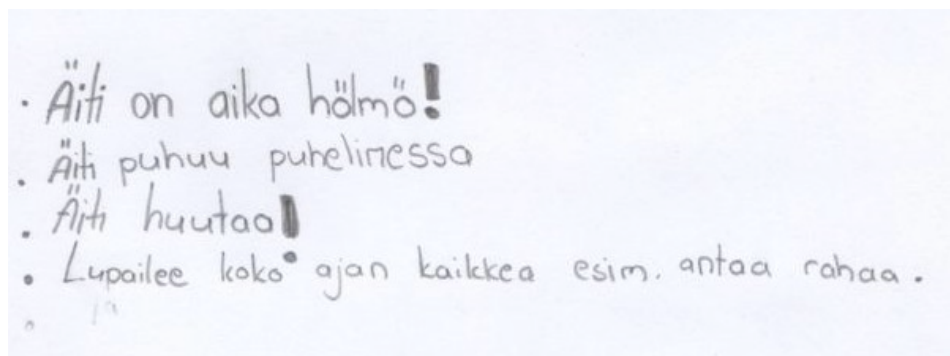 · Äiti on aika hölmö!
. Äiti puhuu puhelimessa
. Äiti huutaa!
. Lupailee koko ajan kaikkea esim. antaa rahaa.